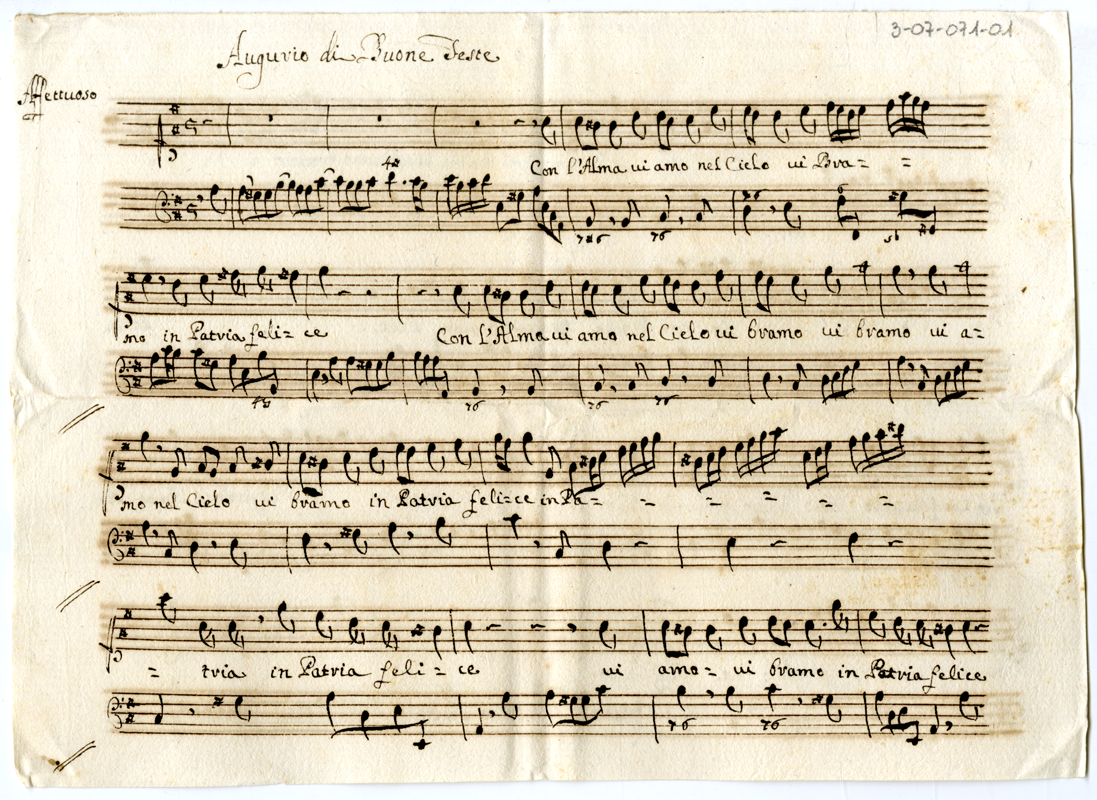 3-07-071-01
Augurio di Buone Feste
Affettuoso
Con l'Alma vi amo nel Cielo vi Bra= =
4#
7#6 76 76 5b
mo in Patria feli= ce Con l'Alma vi amo nel Cielo vi bramo vi bramo vi a=
43 76 76 76
mo nel Cielo vi bramo in Patria feli=ce in Pa= = = = =
= tria in Patria feli= ce vi amo= vi bramo in Patria felice
76 76